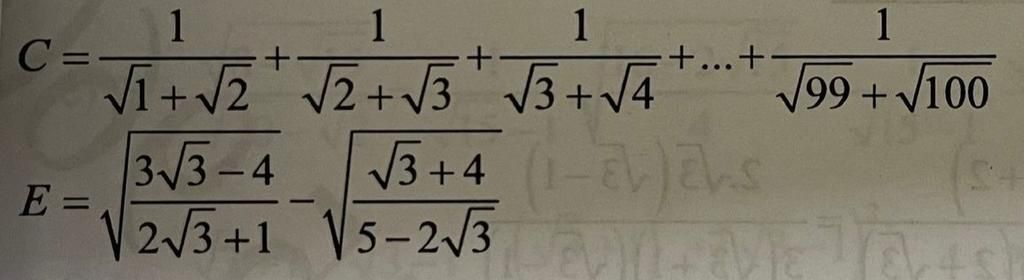 C = 1/(√1+√2) + 1/(√2+√3) + 1/(√3+√4) + ... + 1/(√99+√100)
E = √((3√3−4)/(2√3+1)) − √((√3+4)/(5−2√3))